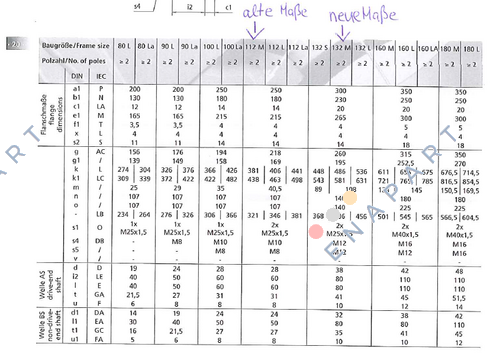 s4 i2 c1
alte Maße neue Maße
Baugröße/Frame size 80 L 80 La 90 L 90 La 100 L 100 La 112 M 112 L 112 La 132 S 132 M 132 L 160 M 160 L 160 LA 180 M 180 L
Polzahl/No. of poles ≥ 2 ≥ 2 ≥ 2 ≥ 2 ≥ 2 ≥ 2 ≥ 2 ≥ 2 ≥ 2 ≥ 2 ≥ 2 ≥ 2 ≥ 2 ≥ 2 ≥ 2 ≥ 2 ≥ 2
DIN IEC
Flanschmaße flange dimensions
a1 P 200 200 250 250 300 350 350
b1 N 130 130 180 180 230 250 250
c1 LA 12 12 14 14 20 20 20
e1 M 165 165 215 215 265 300 300
f1 T 3,5 3,5 4 4 4 5 5
x L 4 4 4 4 4 4 4
s2 S 11 11 14 14 14 18 18
g AC 156 176 194 218 260 315 350
g1 / 139 149 158 169 195 252,5 270
k L 274 304 326 376 366 426 381 406 441 448 486 536 611 675 676,5 714,5
k1 LC 309 339 372 422 422 482 463 498 543 581 631 721 765 785 816,5 854,5
m / 25 29 35 40,5 89 108 145 150,5 169,5
n / 107 107 107 107 140 180 180
/ 107 107 107 107 140 225 225
- LB 234 264 276 326 306 366 321 346 381 368 456 501 545 565 566,5 604,5
s1 O 1x M25x1,5 1x M25x1,5 2x M25x1,5 2x M40x1,5
s4 DB - M8 M10 M10 M12 M16 M16
s5 / - M8 M8 M8 M12 M16 M16
v /
Welle AS drive-end shaft
d D 19 24 28 28 38 42 48
i2 LE 40 50 60 60 80 110 110
l E 40 50 60 60 80 110 110
t GA 21,5 27 31 31 41 45 51,5
u F 6 8 8 8 10 12 14
Welle BS non-drive-end shaft
d1 DA 14 19 24 24 32 38 42
l1 EA 30 40 50 50 80 80 110
t1 GC 16 21,5 27 27 35 41 45
u1 FA 5 6 8 8 10 10 12
ENAPART